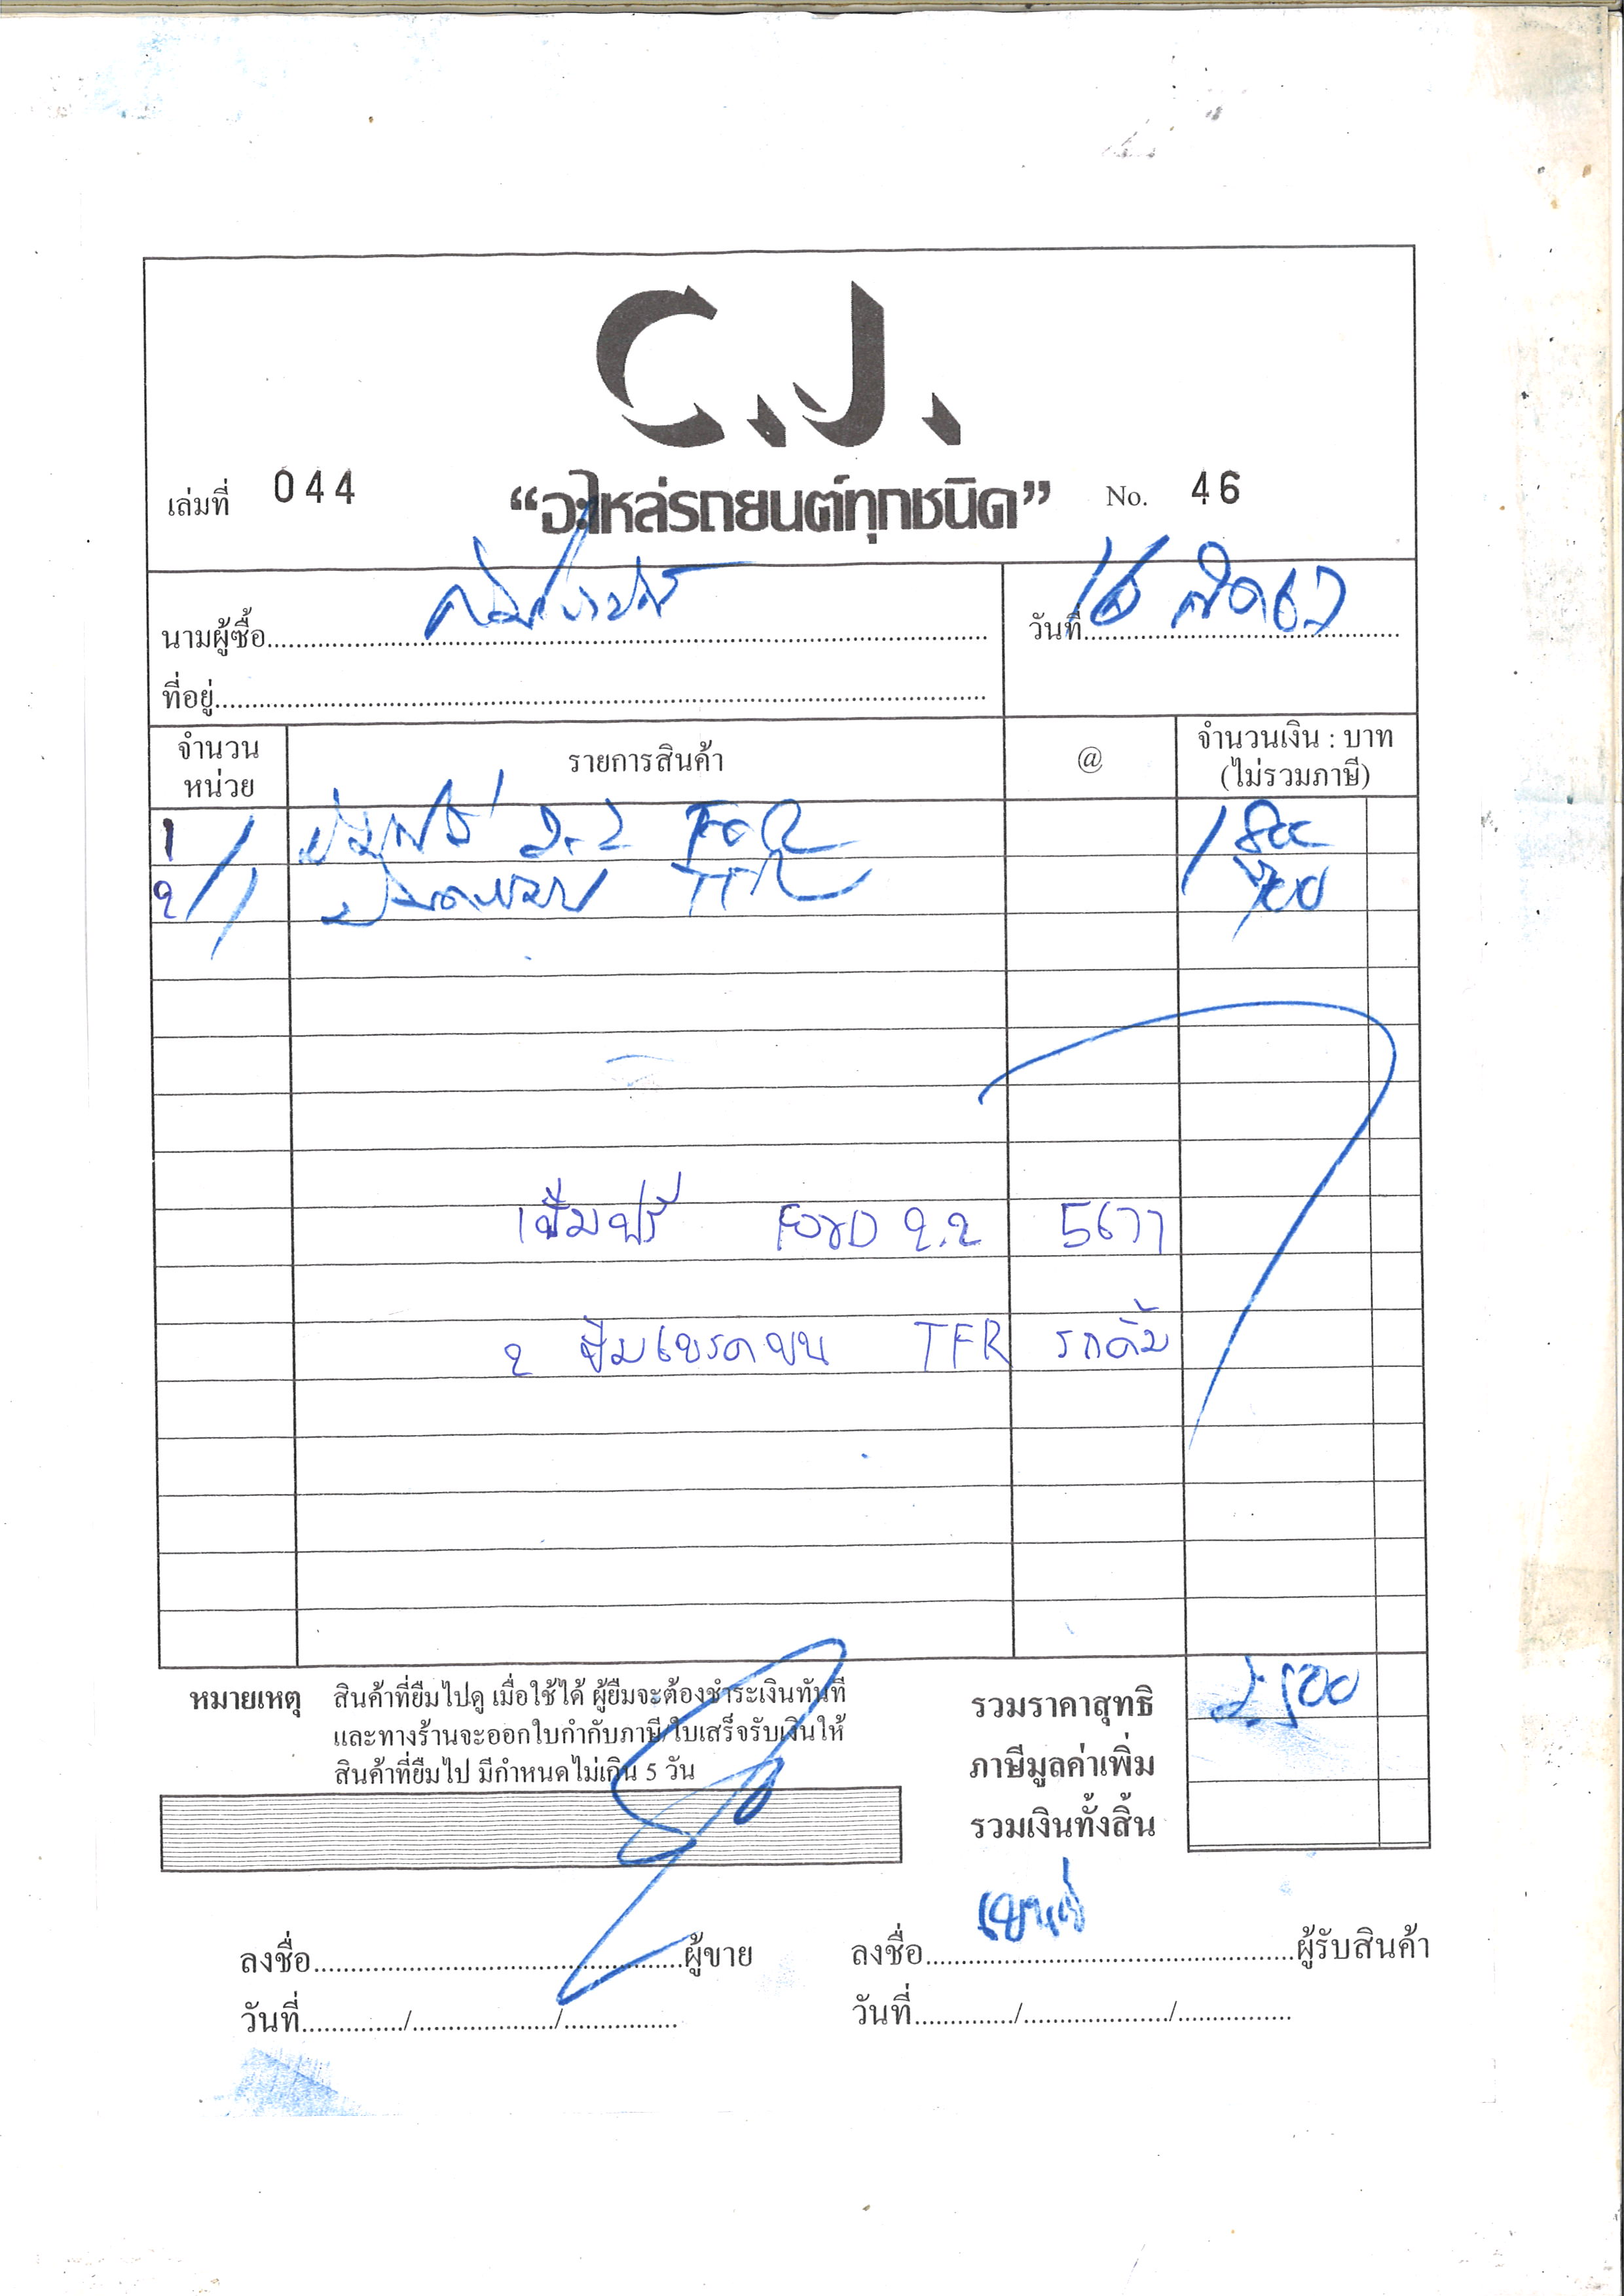 C.J.
เล่มที่ 044 “อะไหล่รถยนต์ทุกชนิด” No. 46
นามผู้ซื้อ
วันที่ 16
ที่อยู่
จำนวนหน่วย รายการสินค้า @ จำนวนเงิน : บาท (ไม่รวมภาษี)
1 / 1 2.2 1800
๒ / 1 TFR 700
1 ปั๊มฟรี FORD ๒.๒ 5677
๒ ปั๊มเบรคบน TFR รถดั้ม
หมายเหตุ สินค้าที่ยืมไปดู เมื่อใช้ได้ ผู้ยืมจะต้องชำระเงินทันที
และทางร้านจะออกใบกำกับภาษี/ใบเสร็จรับเงินให้
สินค้าที่ยืมไป มีกำหนดไม่เกิน 5 วัน
รวมราคาสุทธิ 2.500
ภาษีมูลค่าเพิ่ม
รวมเงินทั้งสิ้น
ลงชื่อ ผู้ขาย ลงชื่อ ผู้รับสินค้า
วันที่ / / วันที่ / /